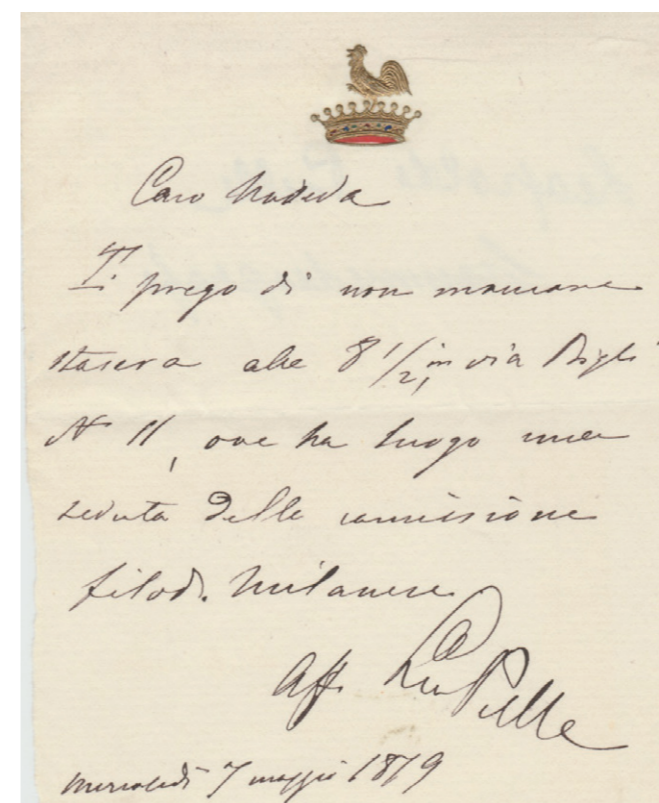 Caro Nadeda
Ti prego di non mancare
stasera alle 8 1/2, in via Bigli
N° 11, ove ha luogo una
seduta della commissione
filod. milanese.
Aff. Leo Pulle
mercoledì 7 maggio 1879